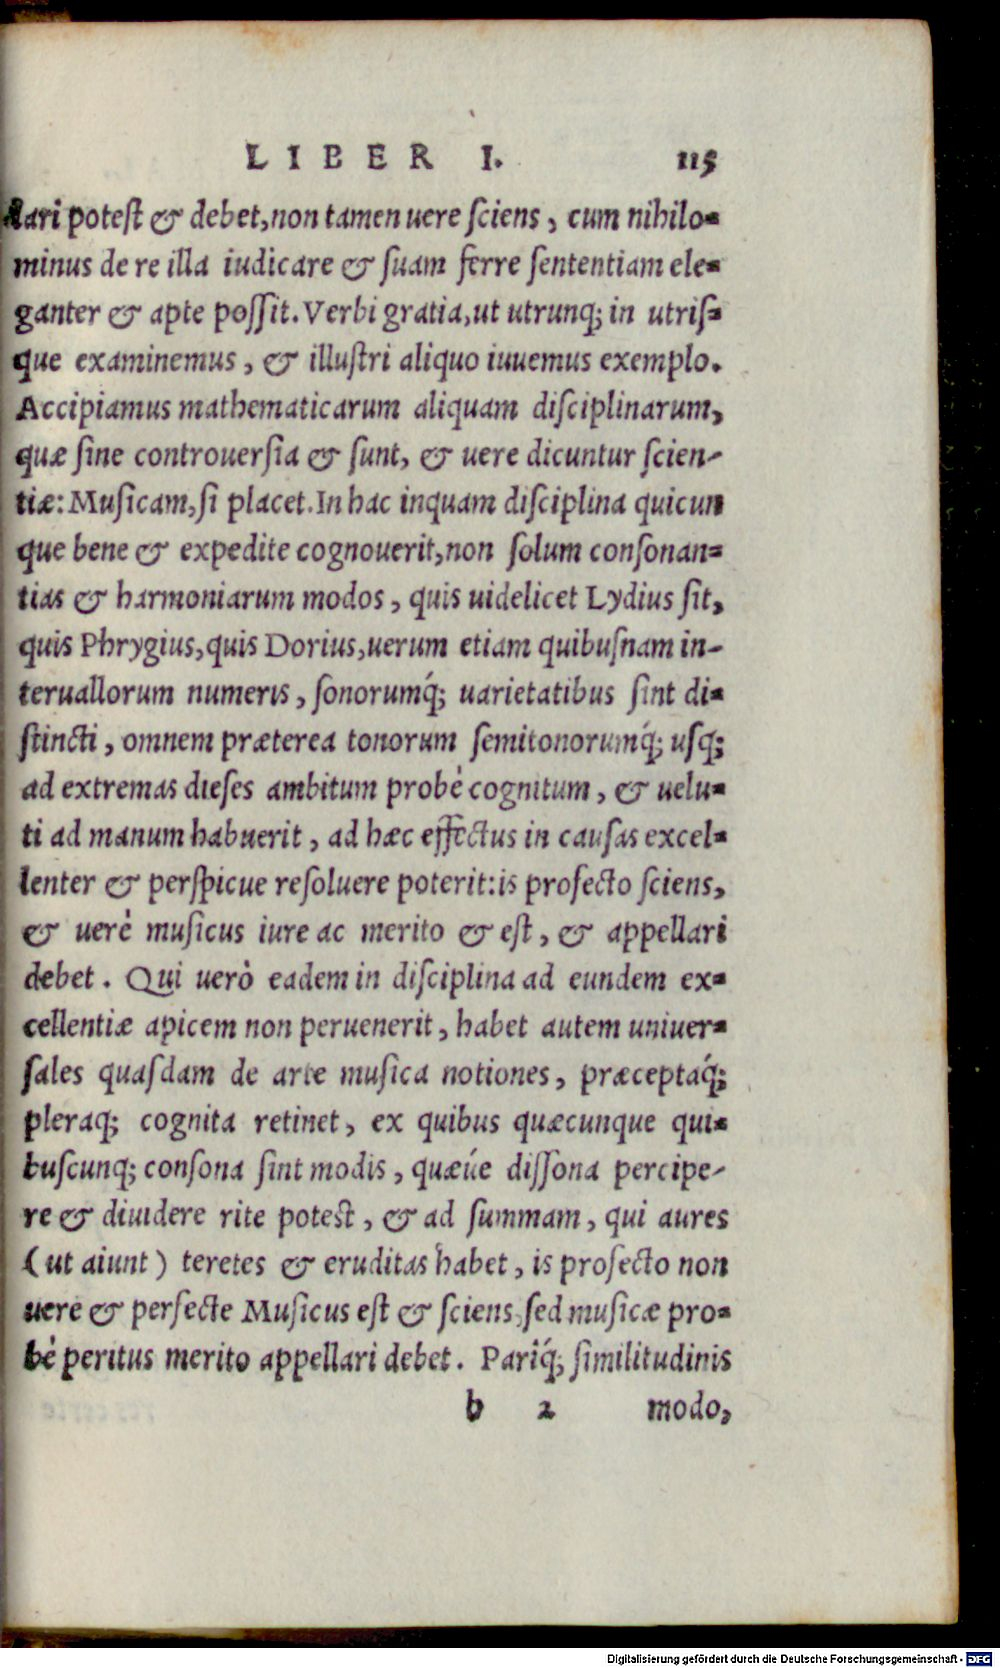 LIBER I. 115
lari poteſt & debet, non tamen uere ſciens, cum nihilo=
minus de re illa iudicare & ſuam ferre ſententiam ele=
ganter & apte poſſit. Verbi gratia, ut utrunq; in utriſ=
que examinemus, & illuſtri aliquo iuuemus exemplo.
Accipiamus mathematicarum aliquam diſciplinarum,
quæ ſine controuerſia & ſunt, & uere dicuntur ſcien-
tiæ: Muſicam, ſi placet. In hac inquam diſciplina quicun
que bene & expedite cognouerit, non ſolum conſonan=
tias & harmoniarum modos, quis uidelicet Lydius ſit,
quis Phrygius, quis Dorius, uerum etiam quibuſnam in-
teruallorum numeris, ſonorumq́; uarietatibus ſint di=
ſtincti, omnem præterea tonorum ſemitonorumq́; uſq;
ad extremas dieſes ambitum probè cognitum, & uelu=
ti ad manum habuerit, ad hæc effectus in cauſas excel=
lenter & perſpicue reſoluere poterit: is profecto ſciens,
& uerè muſicus iure ac merito & eſt, & appellari
debet. Qui uerò eadem in diſciplina ad eundem ex=
cellentiæ apicem non peruenerit, habet autem uniuer=
ſales quaſdam de arte muſica notiones, præceptaq́;
pleraq; cognita retinet, ex quibus quæcunque qui=
buſcunq; conſona ſint modis, quæúe diſſona percipe-
re & diuidere rite poteſt, & ad ſummam, qui aures
(ut aiunt) teretes & eruditas habet, is profecto non
uere & perfecte Muſicus eſt & ſciens, ſed muſicæ pro=
bè peritus merito appellari debet. Pariq́; ſimilitudinis
b 2 modo,
Digitalisierung gefördert durch die Deutsche Forschungsgemeinschaft - DFG